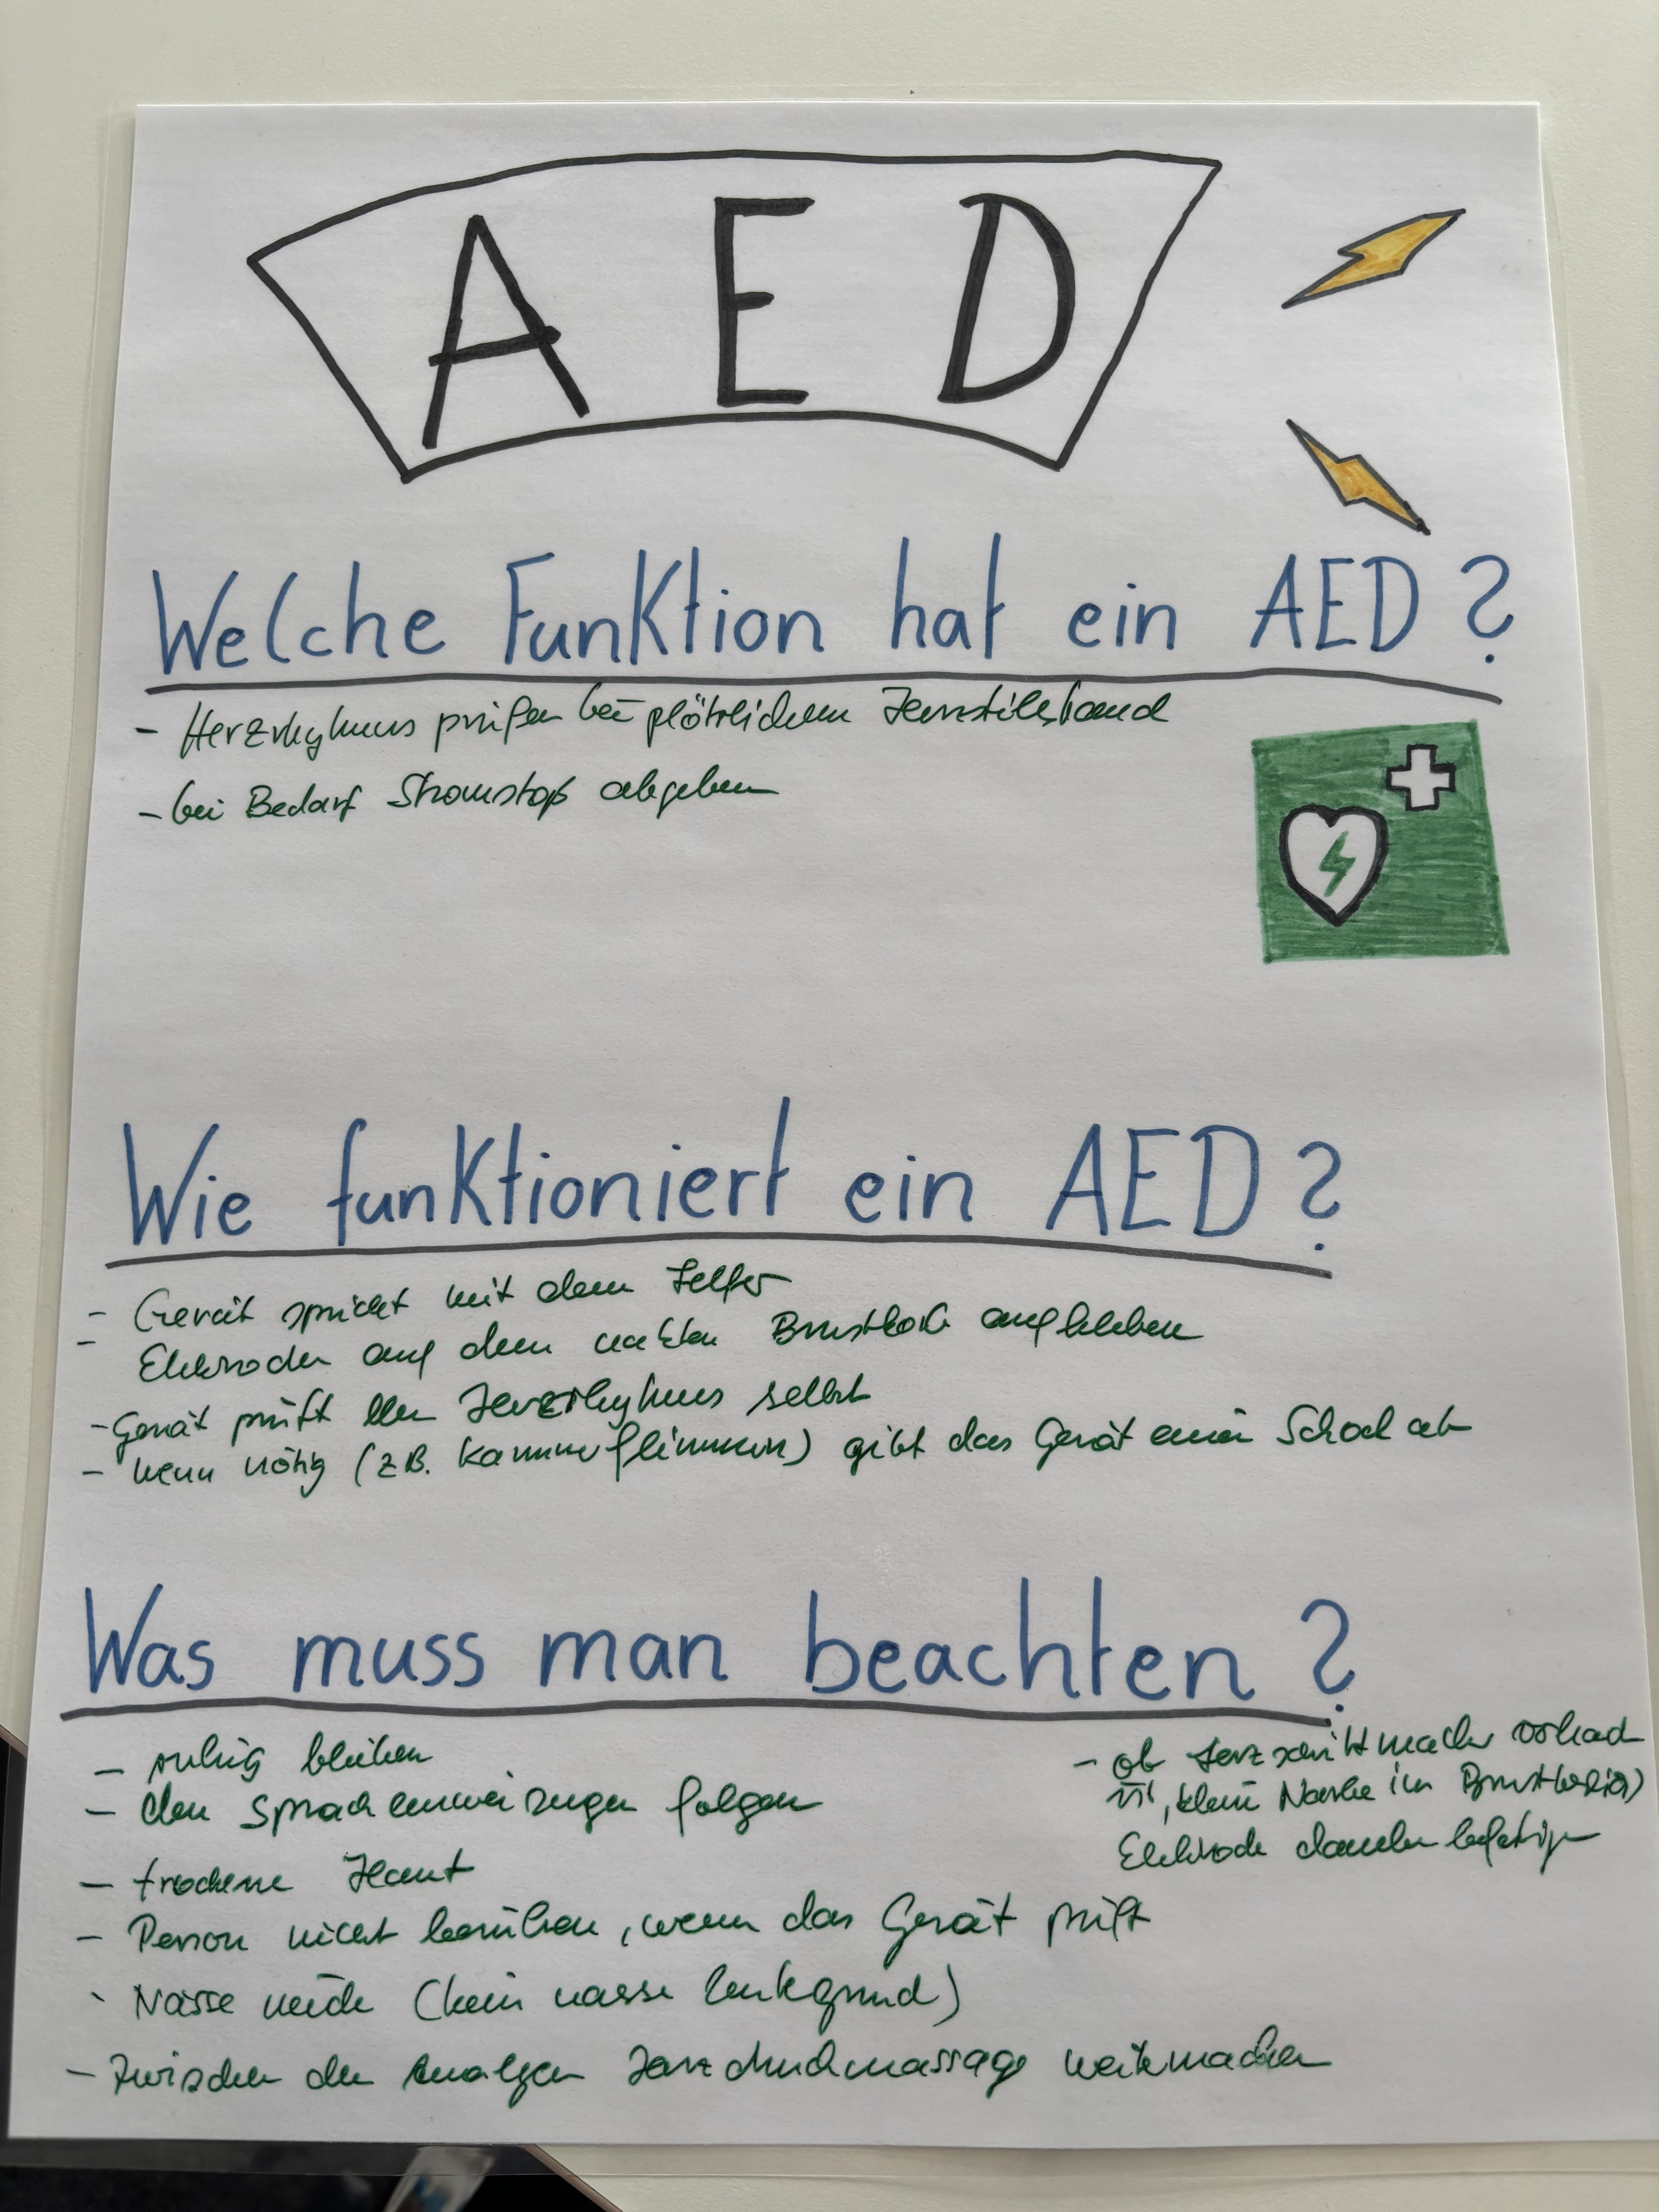 AED
Welche Funktion hat ein AED?
- Herzrhythmus prüfen bei plötzlichem Herzstillstand
- bei Bedarf Stromstoß abgeben
Wie funktioniert ein AED?
- Gerät spricht mit dem Helfer
- Elektroden auf dem nackten Brustkorb aufkleben
- Gerät prüft den Herzrhythmus selbst
- wenn nötig (z.B. Kammerflimmern) gibt das Gerät einen Schock ab
Was muss man beachten?
- ruhig bleiben
- den Sprachanweisungen folgen
- trockene Haut
- Person nicht berühren, wenn das Gerät prüft
- Nässe meiden (kein nasser Untergrund)
- Zwischen den Analysen Herzdruckmassage weitermachen
- ob Herzschrittmacher vorhand
ist, kleine Narbe im
Elektrode daneben befestigen